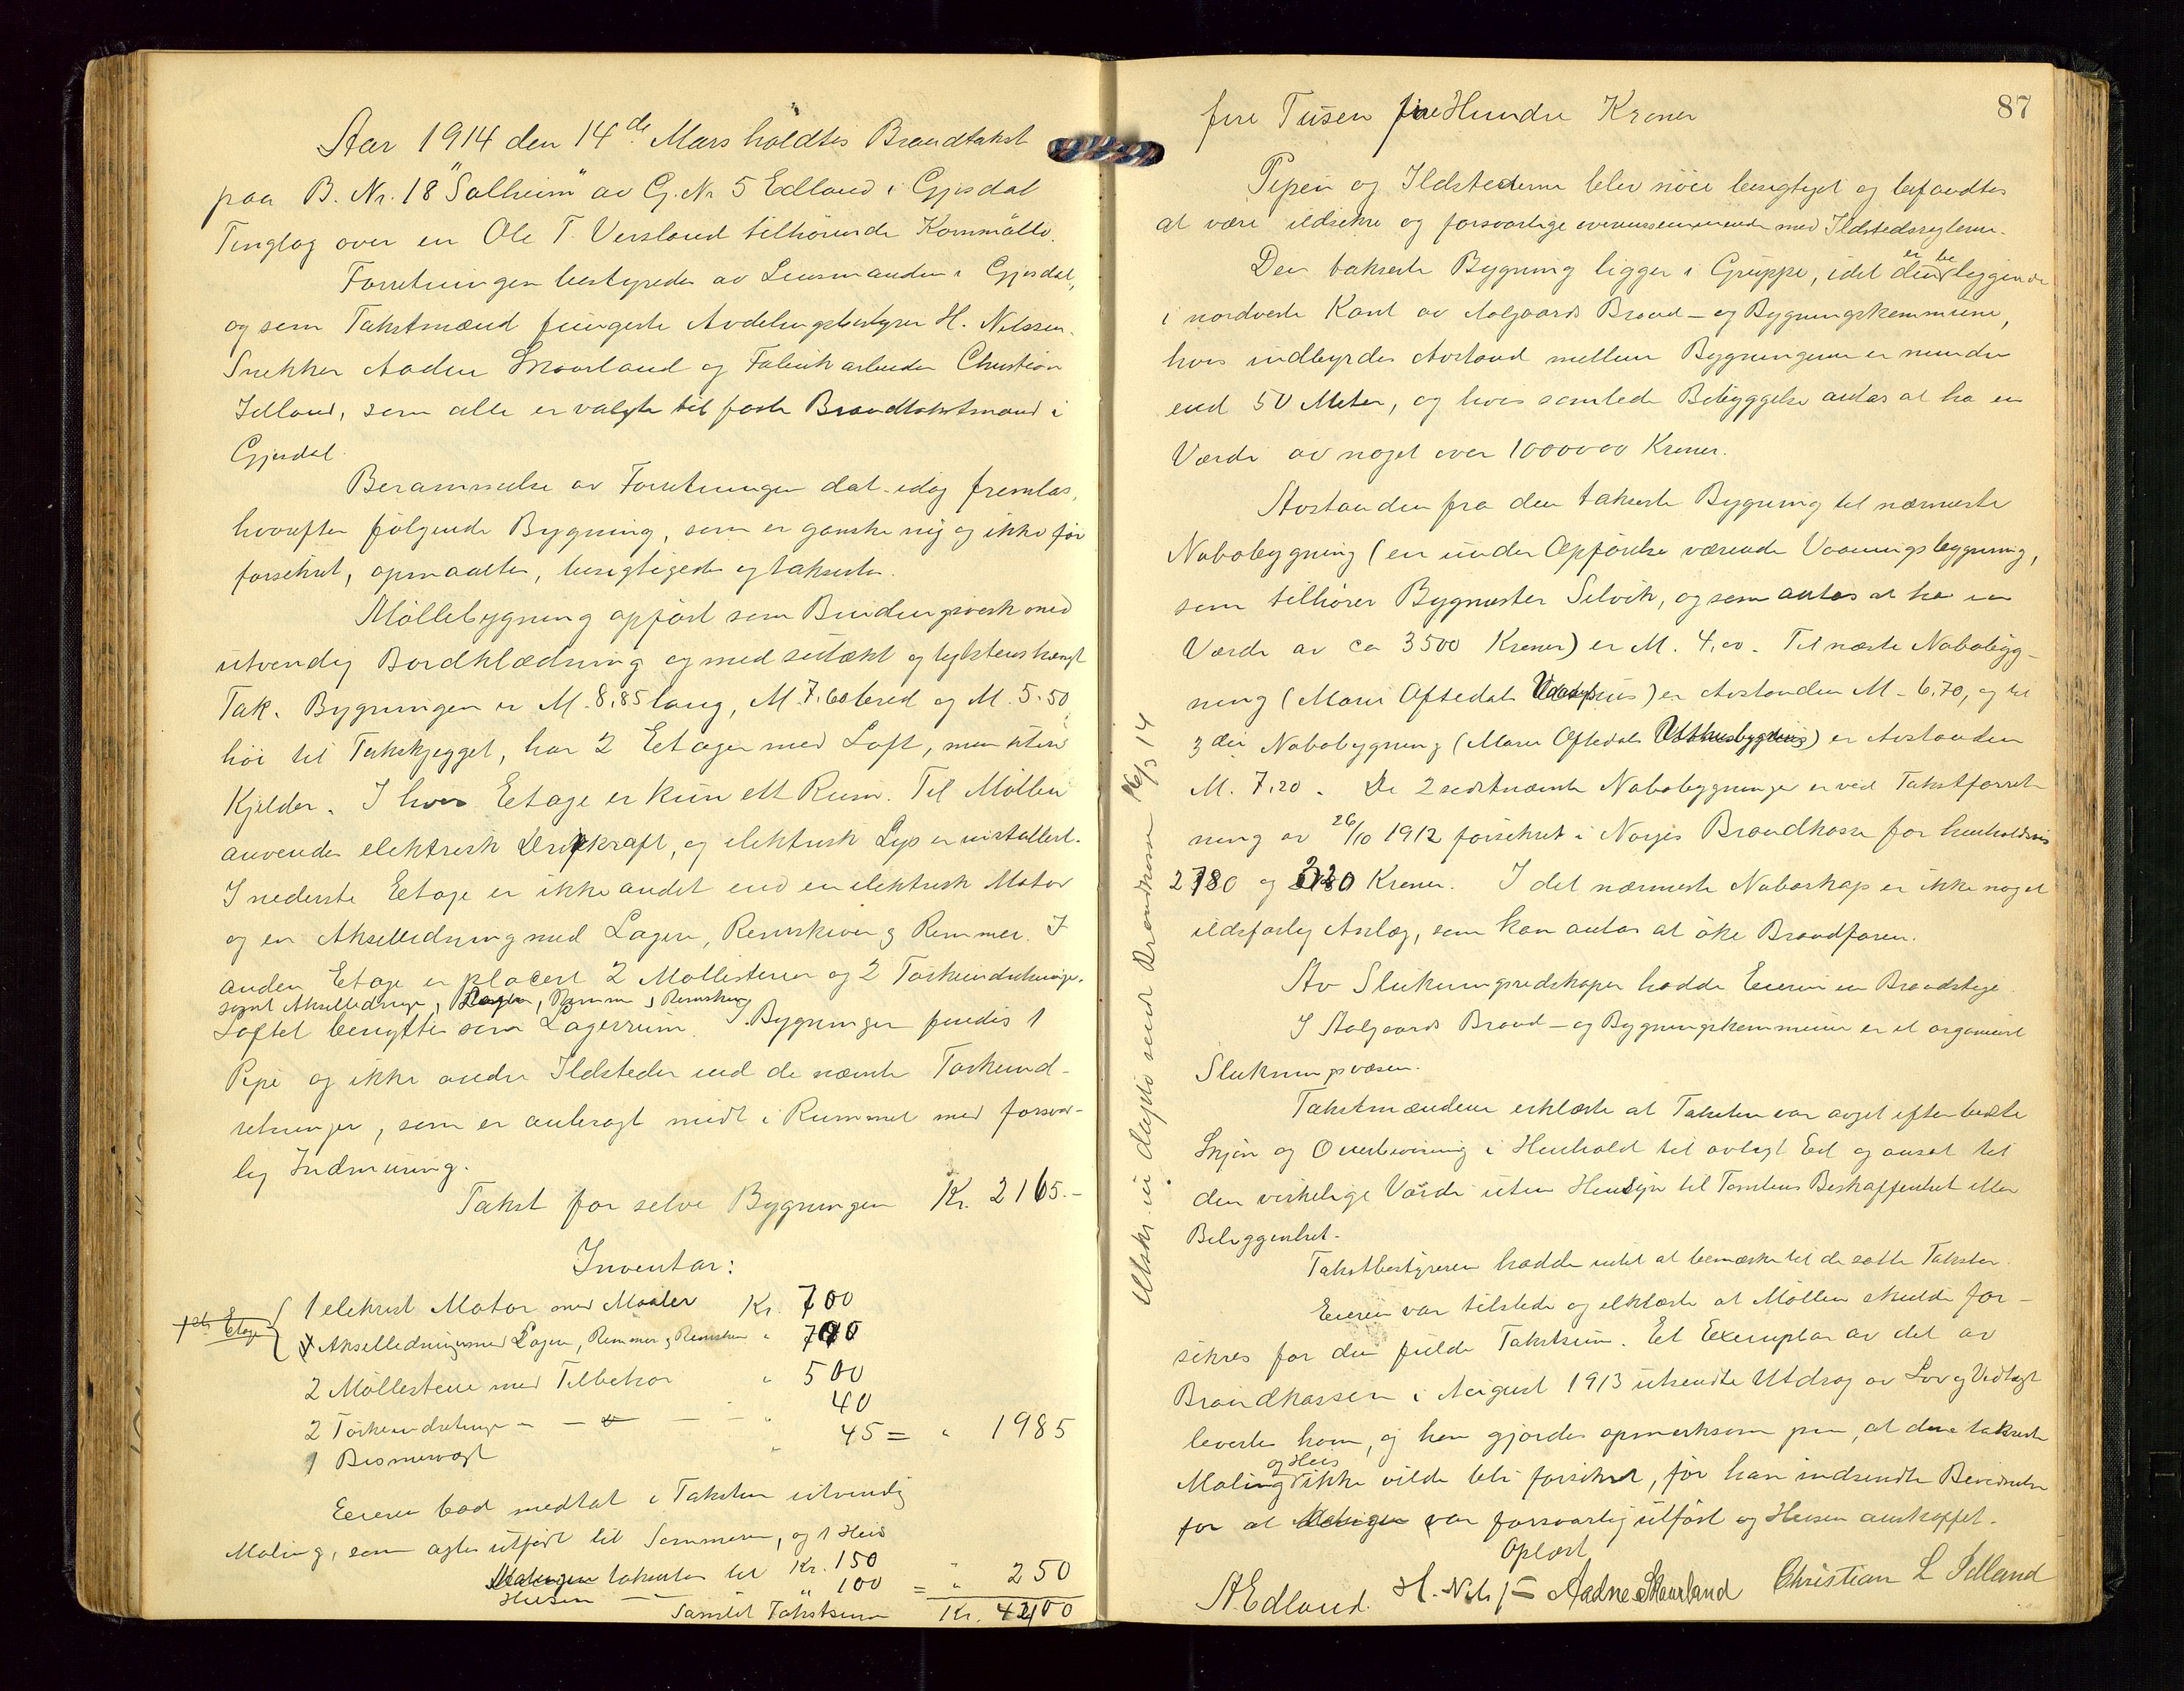 Aar 1914 den 14de Mars holdtes Brandtakst
paa B. Nr. 18 "Solheim" av G. Nr 5 Edland i Gjesdal
Tinglag over en Ole T. Versland tilhörende Kornmölle.
Forretningen bestyredes av Lensmanden i Gjesdal,
og som Takstmænd fungerte Avdelingsbestyrer H. Nilssen,
Snekker Aadne Skaarland og Fabrikarbeider Christian
Idland, som alle er valgte til faste Brandtakstmænd i
Gjesdal.
Berammelse av Forretningen dat. idag fremlas,
hvorefter følgende Bygning, som er ganske ny og ikke før
forsikret, opmaaltes, besigtigedes og taksertes.
Möllebygning opfört som Bindingsverk med
utvendig Bordklædning og med sutækt og tegelstenshængt
Tak. Bygningen er M. 8,85 lang, M. 7,60 bred og M. 5.50
höi til Takskjegget, har 2 Etager med Loft, men uten
Kjelder. I hver Etage er kun ett Rum. Til Möllen
anvendes elektrisk Drivkraft, og elektrisk Lys er installert.
I nederste Etage er ikke andet end en elektrisk Motor
og en Akselledning med Lagere, Remskiver og Remmer. I
anden Etage er placert 2 Möllestener og 2 Törkeindretninger,
samt Akselledninge, Lagere, Remmer og Remskiver
Loftet benyttes som Lagerrum. I Bygningen findes 1
Pipe og ikke andre Ildsteder end de nævnte Törkeind-
retninger, som er anbragt midt i Rummet med forsvar-
lig Indmuring.
Takst for selve Bygningen Kr. 2165.-
Inventar:
1ste Etage { 1 elektrisk Motor med Maaler Kr. 700
Akselledninger med Lagere, Remmer og Remskiver " 700
2 Möllestene med Tilbehör " 500
2 Törkeindretninger - - " 40
1 Bismervægt " 45 = " 1985
Eieren bad medtat i Taksten utvendig
Maling, som agtes utfört til Sommeren, og 1 Heis
Malingen taksertes til Kr. 150
Heisen — " 100 = " 250
Samlet Takstsum Kr. 4400
87
fire Tusen fire Hundre Kroner
Pipen og Ildstederne blev nöie besigtiget og befandtes
at være ildsikre og forsvarlige overensstemmende med Ildstedsreglerne.
Den takserte Bygning ligger i Gruppe, idet den er beliggende
i nordvestre Kant av Aalgaards Brand- og Bygningskommune,
hvis indbyrdes Avstand mellem Bygningerne er mindre
end 50 Meter, og hvis samlede Bebyggelse antas at ha en
Værdi av noget over 1000000 Kroner.
Avstanden fra den takserte Bygning til nærmeste
Nabobygning (en under Opförelse værende Vaaningsbygning,
som tilhörer Bygmester Selvik, og som antas at ha en
Værdi av ca 3500 Kroner) er M. 4,00. Til næste Nabobygg-
ning (Marie Oftedals Vaaningshus) er Avstanden M. 6,70, og til
3die Nabobygning (Marie Oftedals Uthusbygning) er Avstanden
M. 7,20. De 2 sidstnævnte Nabobygninger er ved Takstforret-
ning av 26/10 1912 forsikret i Norges Brandkasse for henholdsvis
2780 og 320 Kroner. I det nærmeste Naboskap er ikke noget
ildsfarlig Anlæg, som kan antas at öke Brandfaren.
Av Slukningsredskaper hadde Eieren en Brandstige.
I Aalgaards Brand- og Bygningskommune er et organisert
Slukningsvæsen.
Takstmændene erklærte at Taksten var avgit efter bedste
Skjön og Overbevisning i Henhold til avlagt Ed og ansat til
den virkelige Værdi uten Hensyn til Tomtens Beskaffenhet eller
Beliggenhet.
Takstbestyreren hadde intet at bemærke til de satte Takster.
Eieren var tilstede og erklærte at Möllen skulde for-
sikres for den fulde Takstsum. Et Exemplar av det av
Brandkassen i August 1913 utsendte Utdrag av Lov og Vedtægt
levertes ham, og han gjordes opmerksom paa, at den takserte
Maling og Heis ikke vilde bli forsikret, för han indsendte Bevidnelse
for at Malingen var forsvarlig utfört og Heisen anskaffet.
Oplæst
A. Edland. H. Nils S= Aadne Skaarland Christian L Idland
Utskr. in duplo sendt Brandkassen 16/3 14